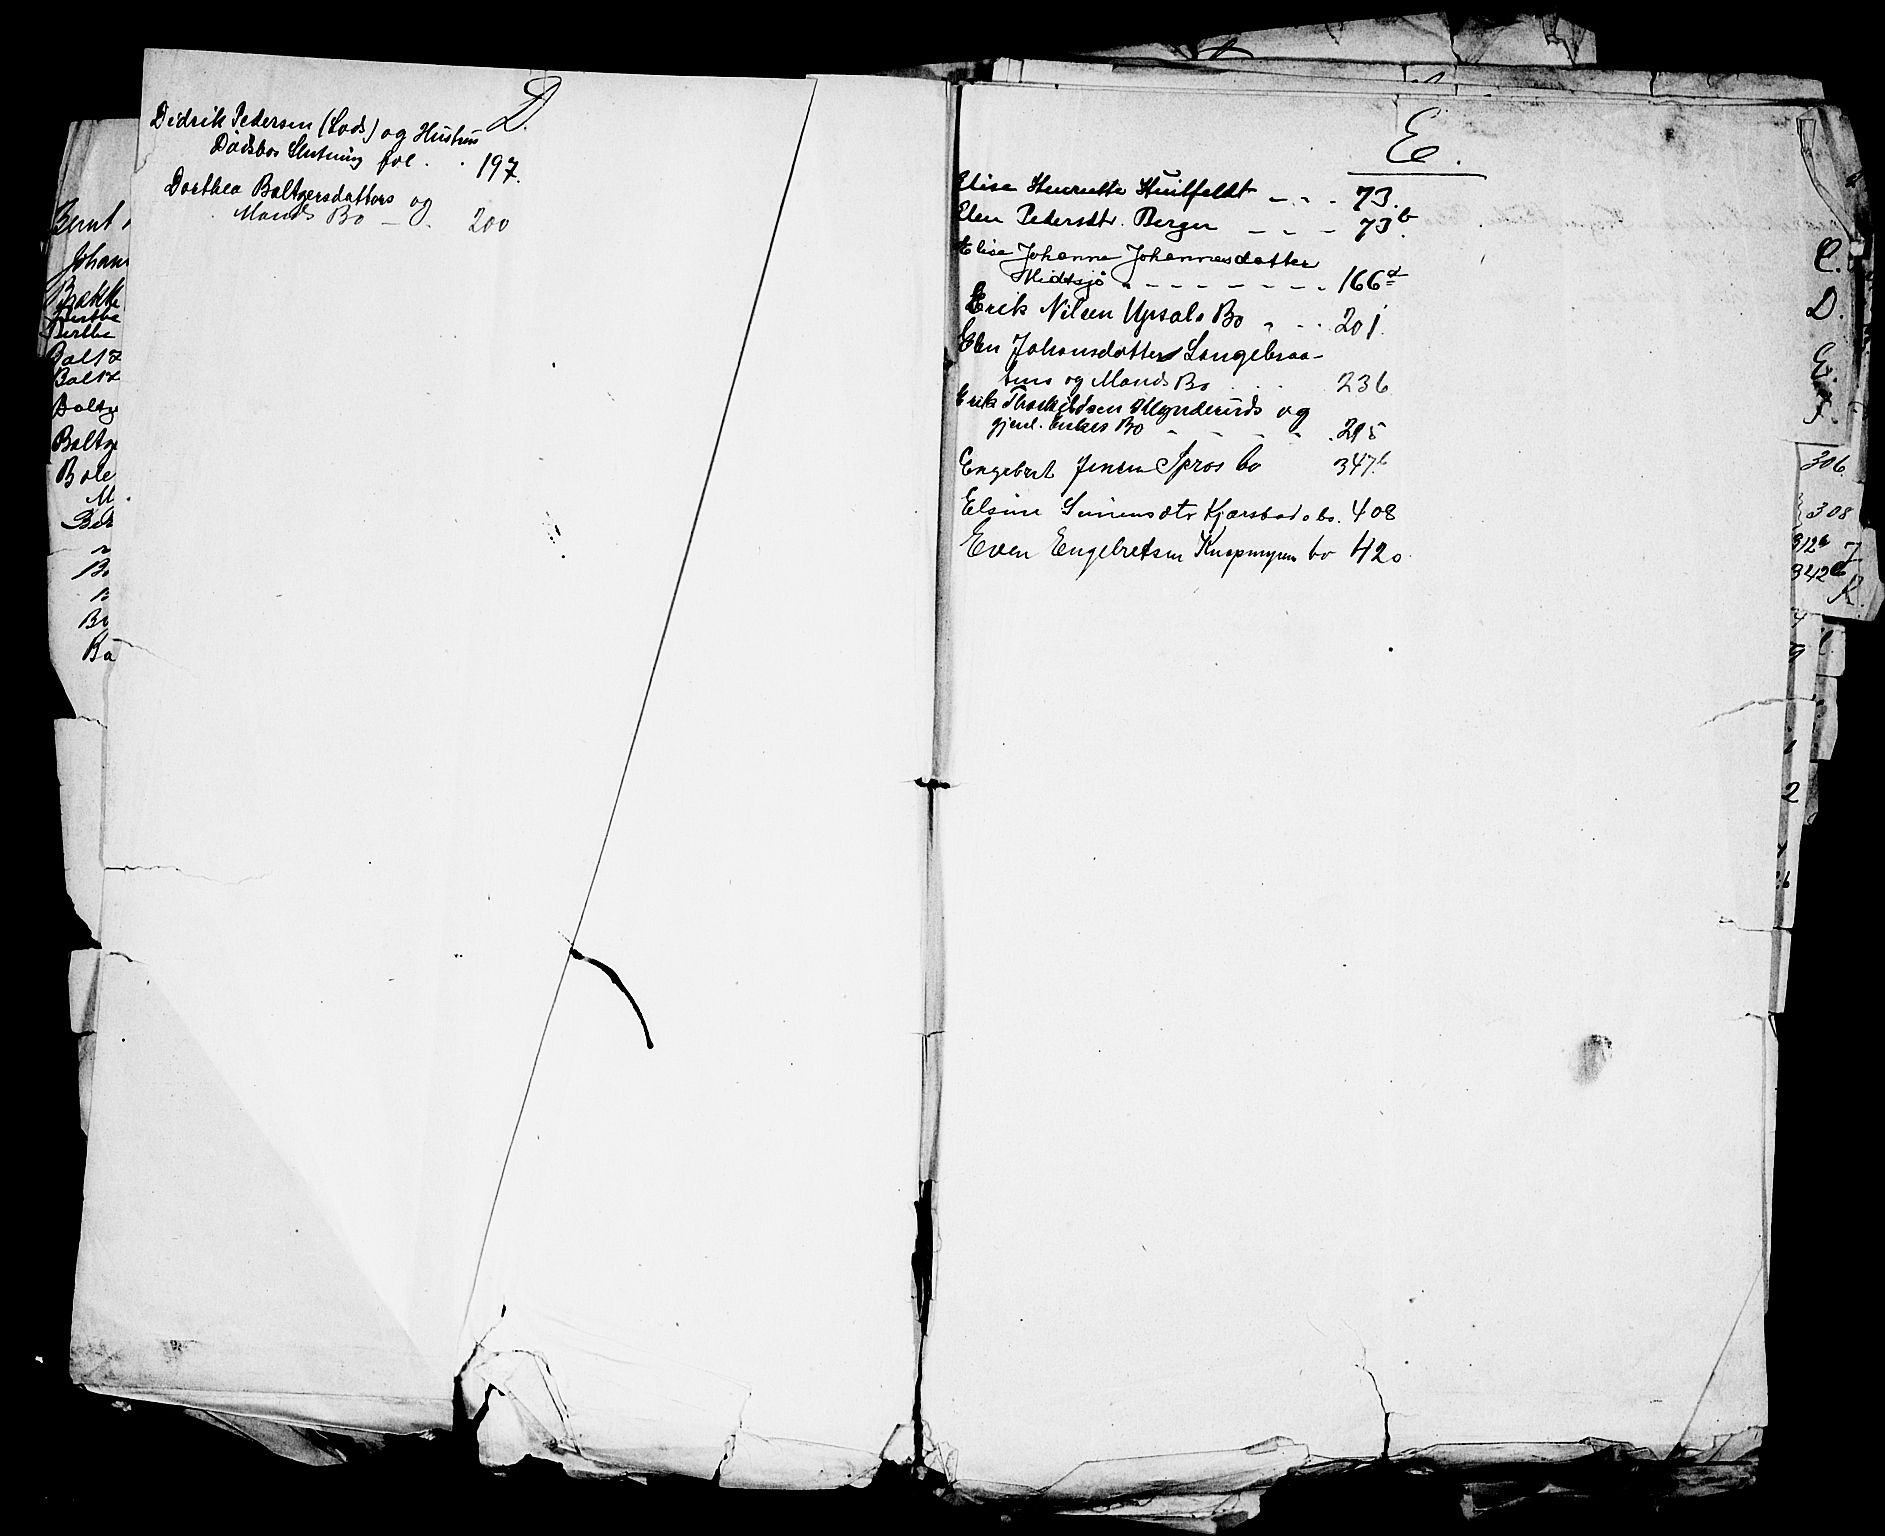 D.
Didrik Pedersen (Lods) og Hustrus
Dødsbos Slutning fol. . 197.
Dorthea Baltzersdatters og
Mands Bo — . 200
E.
Elise Henriette Huitfeldt - - - 73.
Elen Pedersdtr. Berger - - - 73b.
Elise Johanne Johannesdatter
Midtsjø - - - - - - - - 166a
Erik Nilsen Upsals Bo - - - 201.
Elen Johansdatter Langebraa-
tens og Mands Bo . . . 236
Erik Thorkildsen Mynderuds og
gjenl. Enkes Bo - - - - . 295
Engebret Jensen Spros bo 347b
Elsine Simensdtr Kjærsbad's bo. 408
Even Engebretsen Knapmyren bo 420.
Bernt
Johan
Brække
Berthe
Berthe
Baltz
Baltz
Baltze
Baltze
Bole
M
Ber
Bo
B
Br
Ba
C.
D.
E.
F.
306
308
312b
342b
J.
K.
L.
2